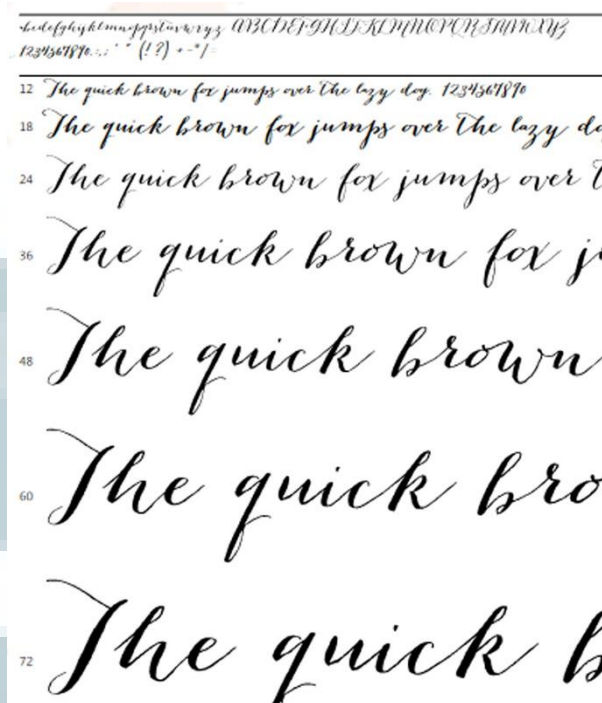 abcdefghijklmnopqrstuvwxyz ABCDEFGHIJKLMNOPQRSTUVWXYZ
1234567890.:,; ' " (!?) +-*/=
12 The quick brown fox jumps over the lazy dog. 1234567890
18 The quick brown fox jumps over the lazy do
24 The quick brown fox jumps over t
36 The quick brown fox j
48 The quick brown
60 The quick bro
72 The quick b